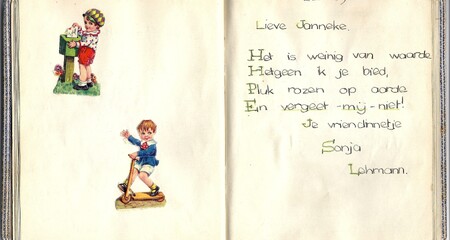 Lieve Janneke.
Het is weinig van waarde
Hetgeen ik je bied,
Pluk rozen op aarde
En vergeet-mij-niet!
Je vriendinnetje
Sonja
Lohmann.